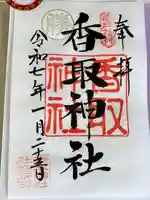 奉拝
香取神社
令和七年一月二十五日
香取
神社